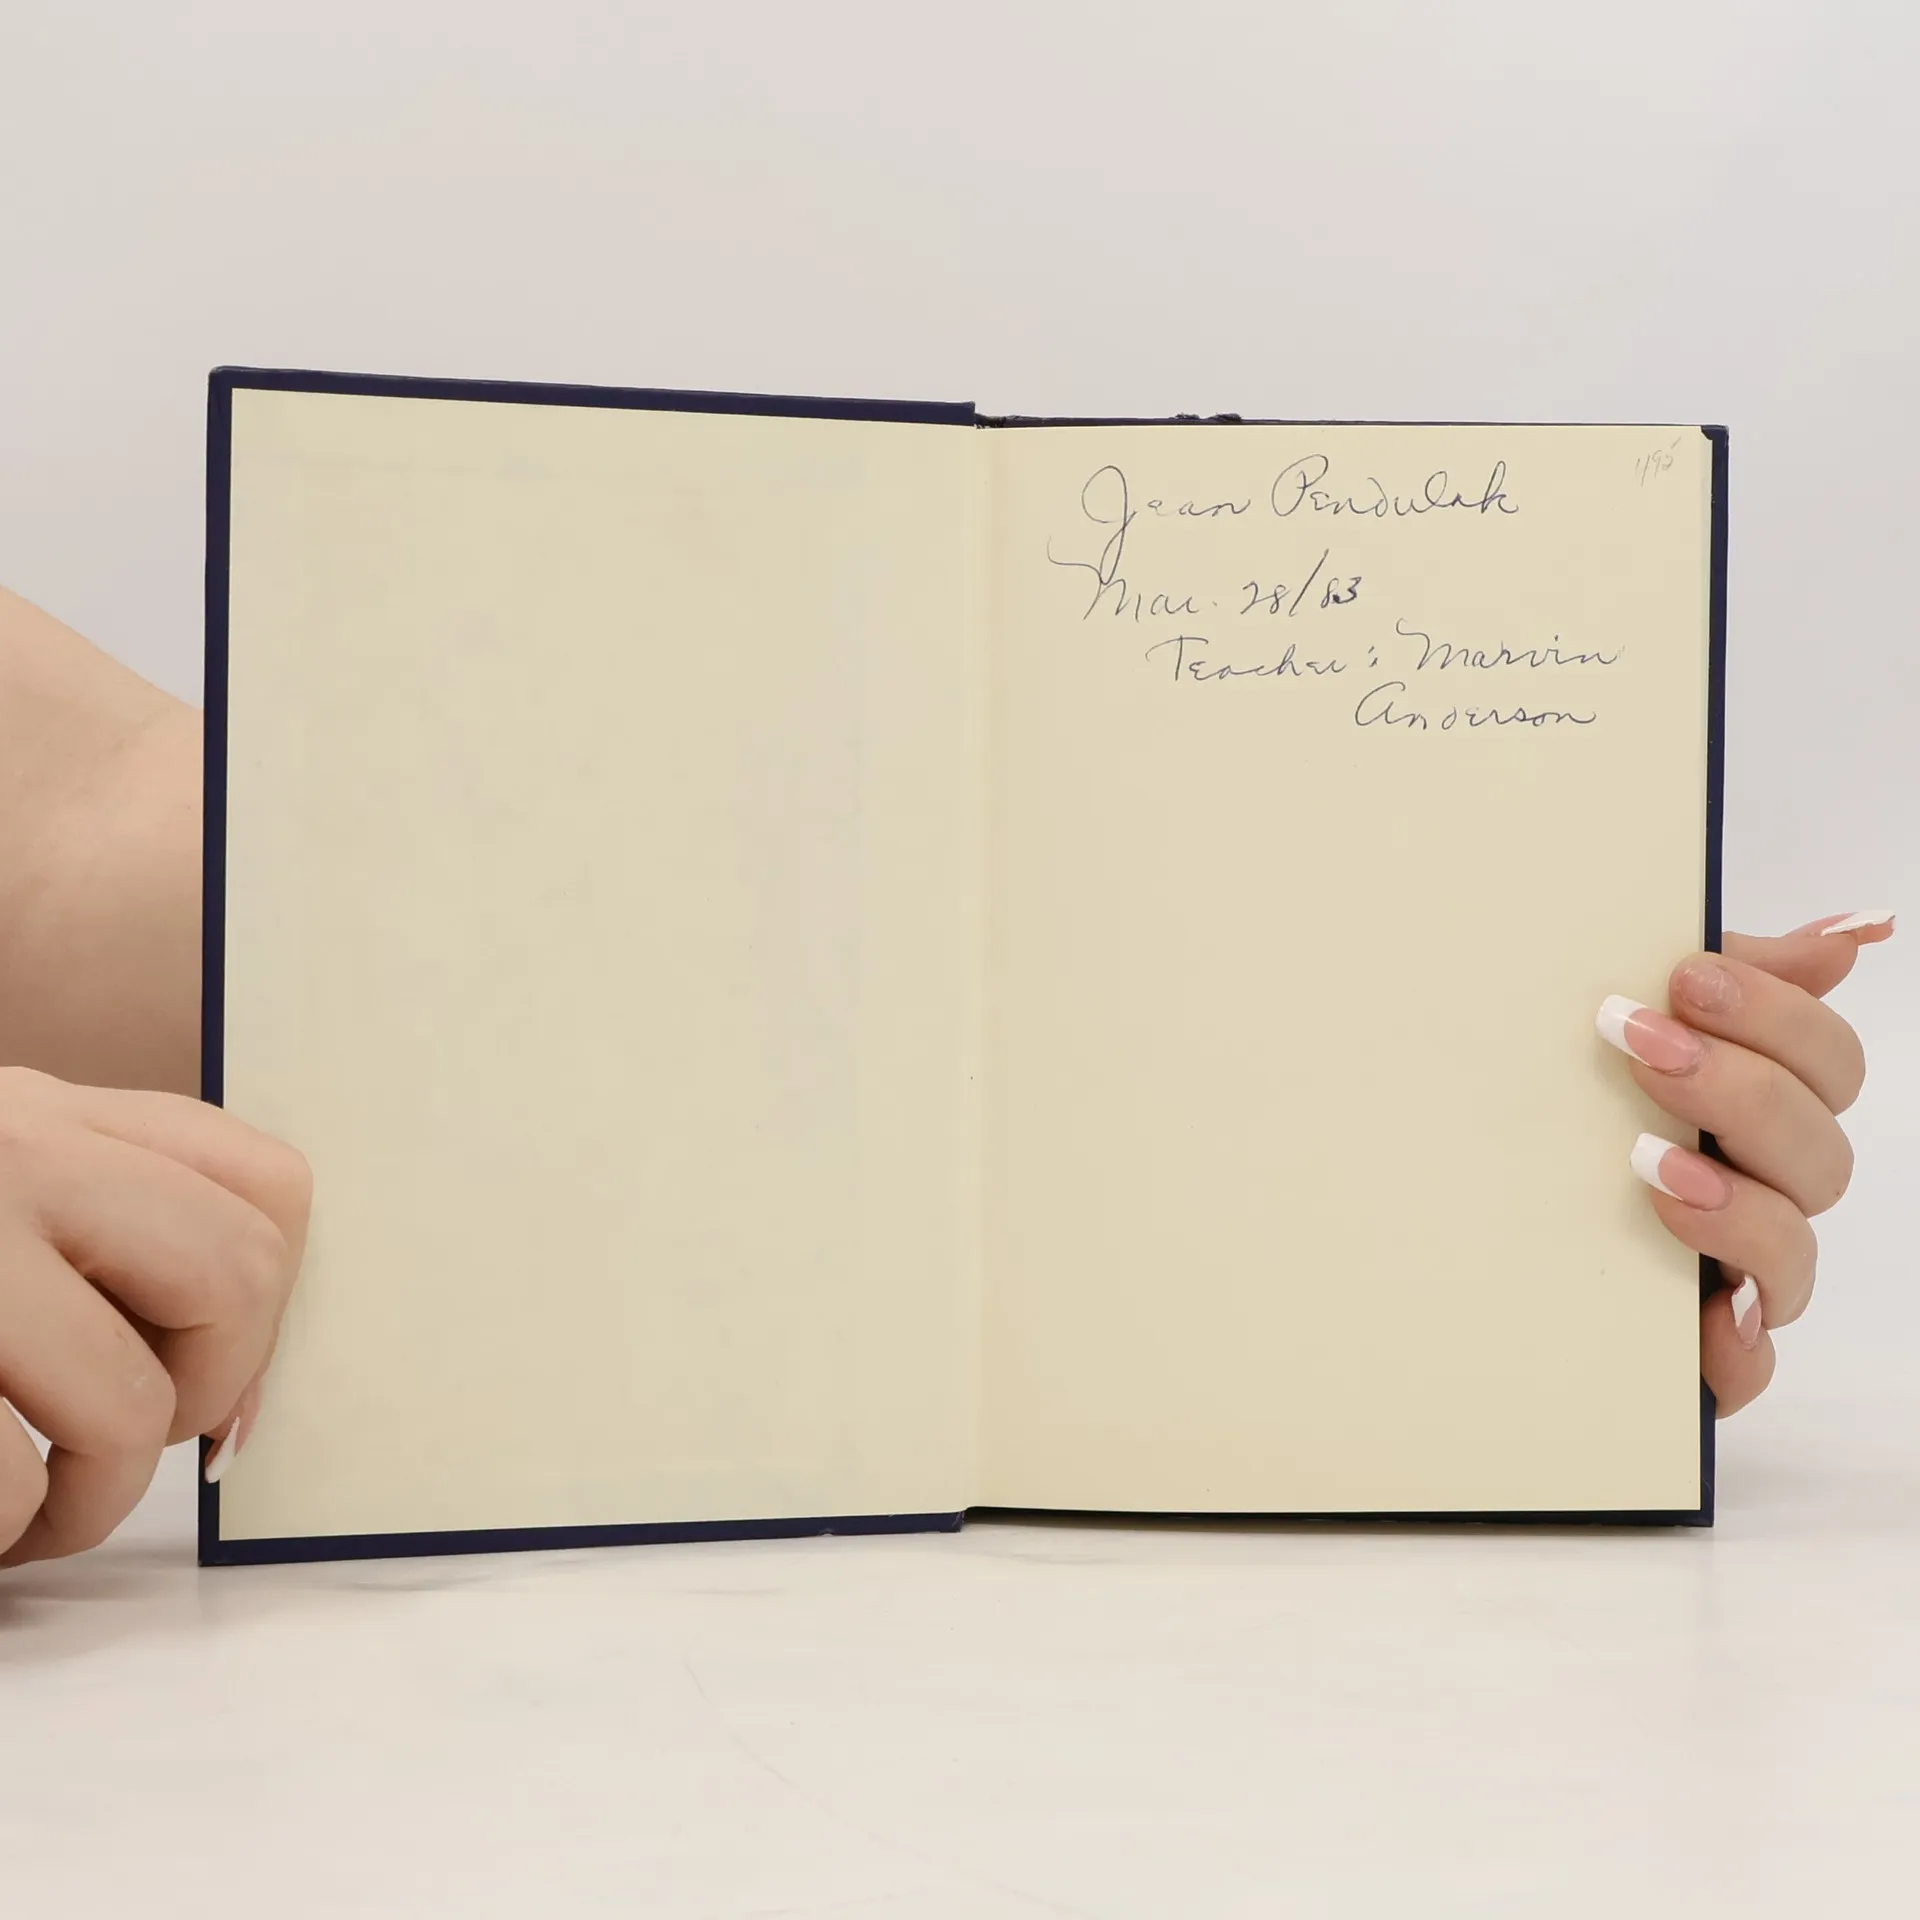 Jean Pendulak
Mar. 28/83
Teacher: Marvin
Anderson